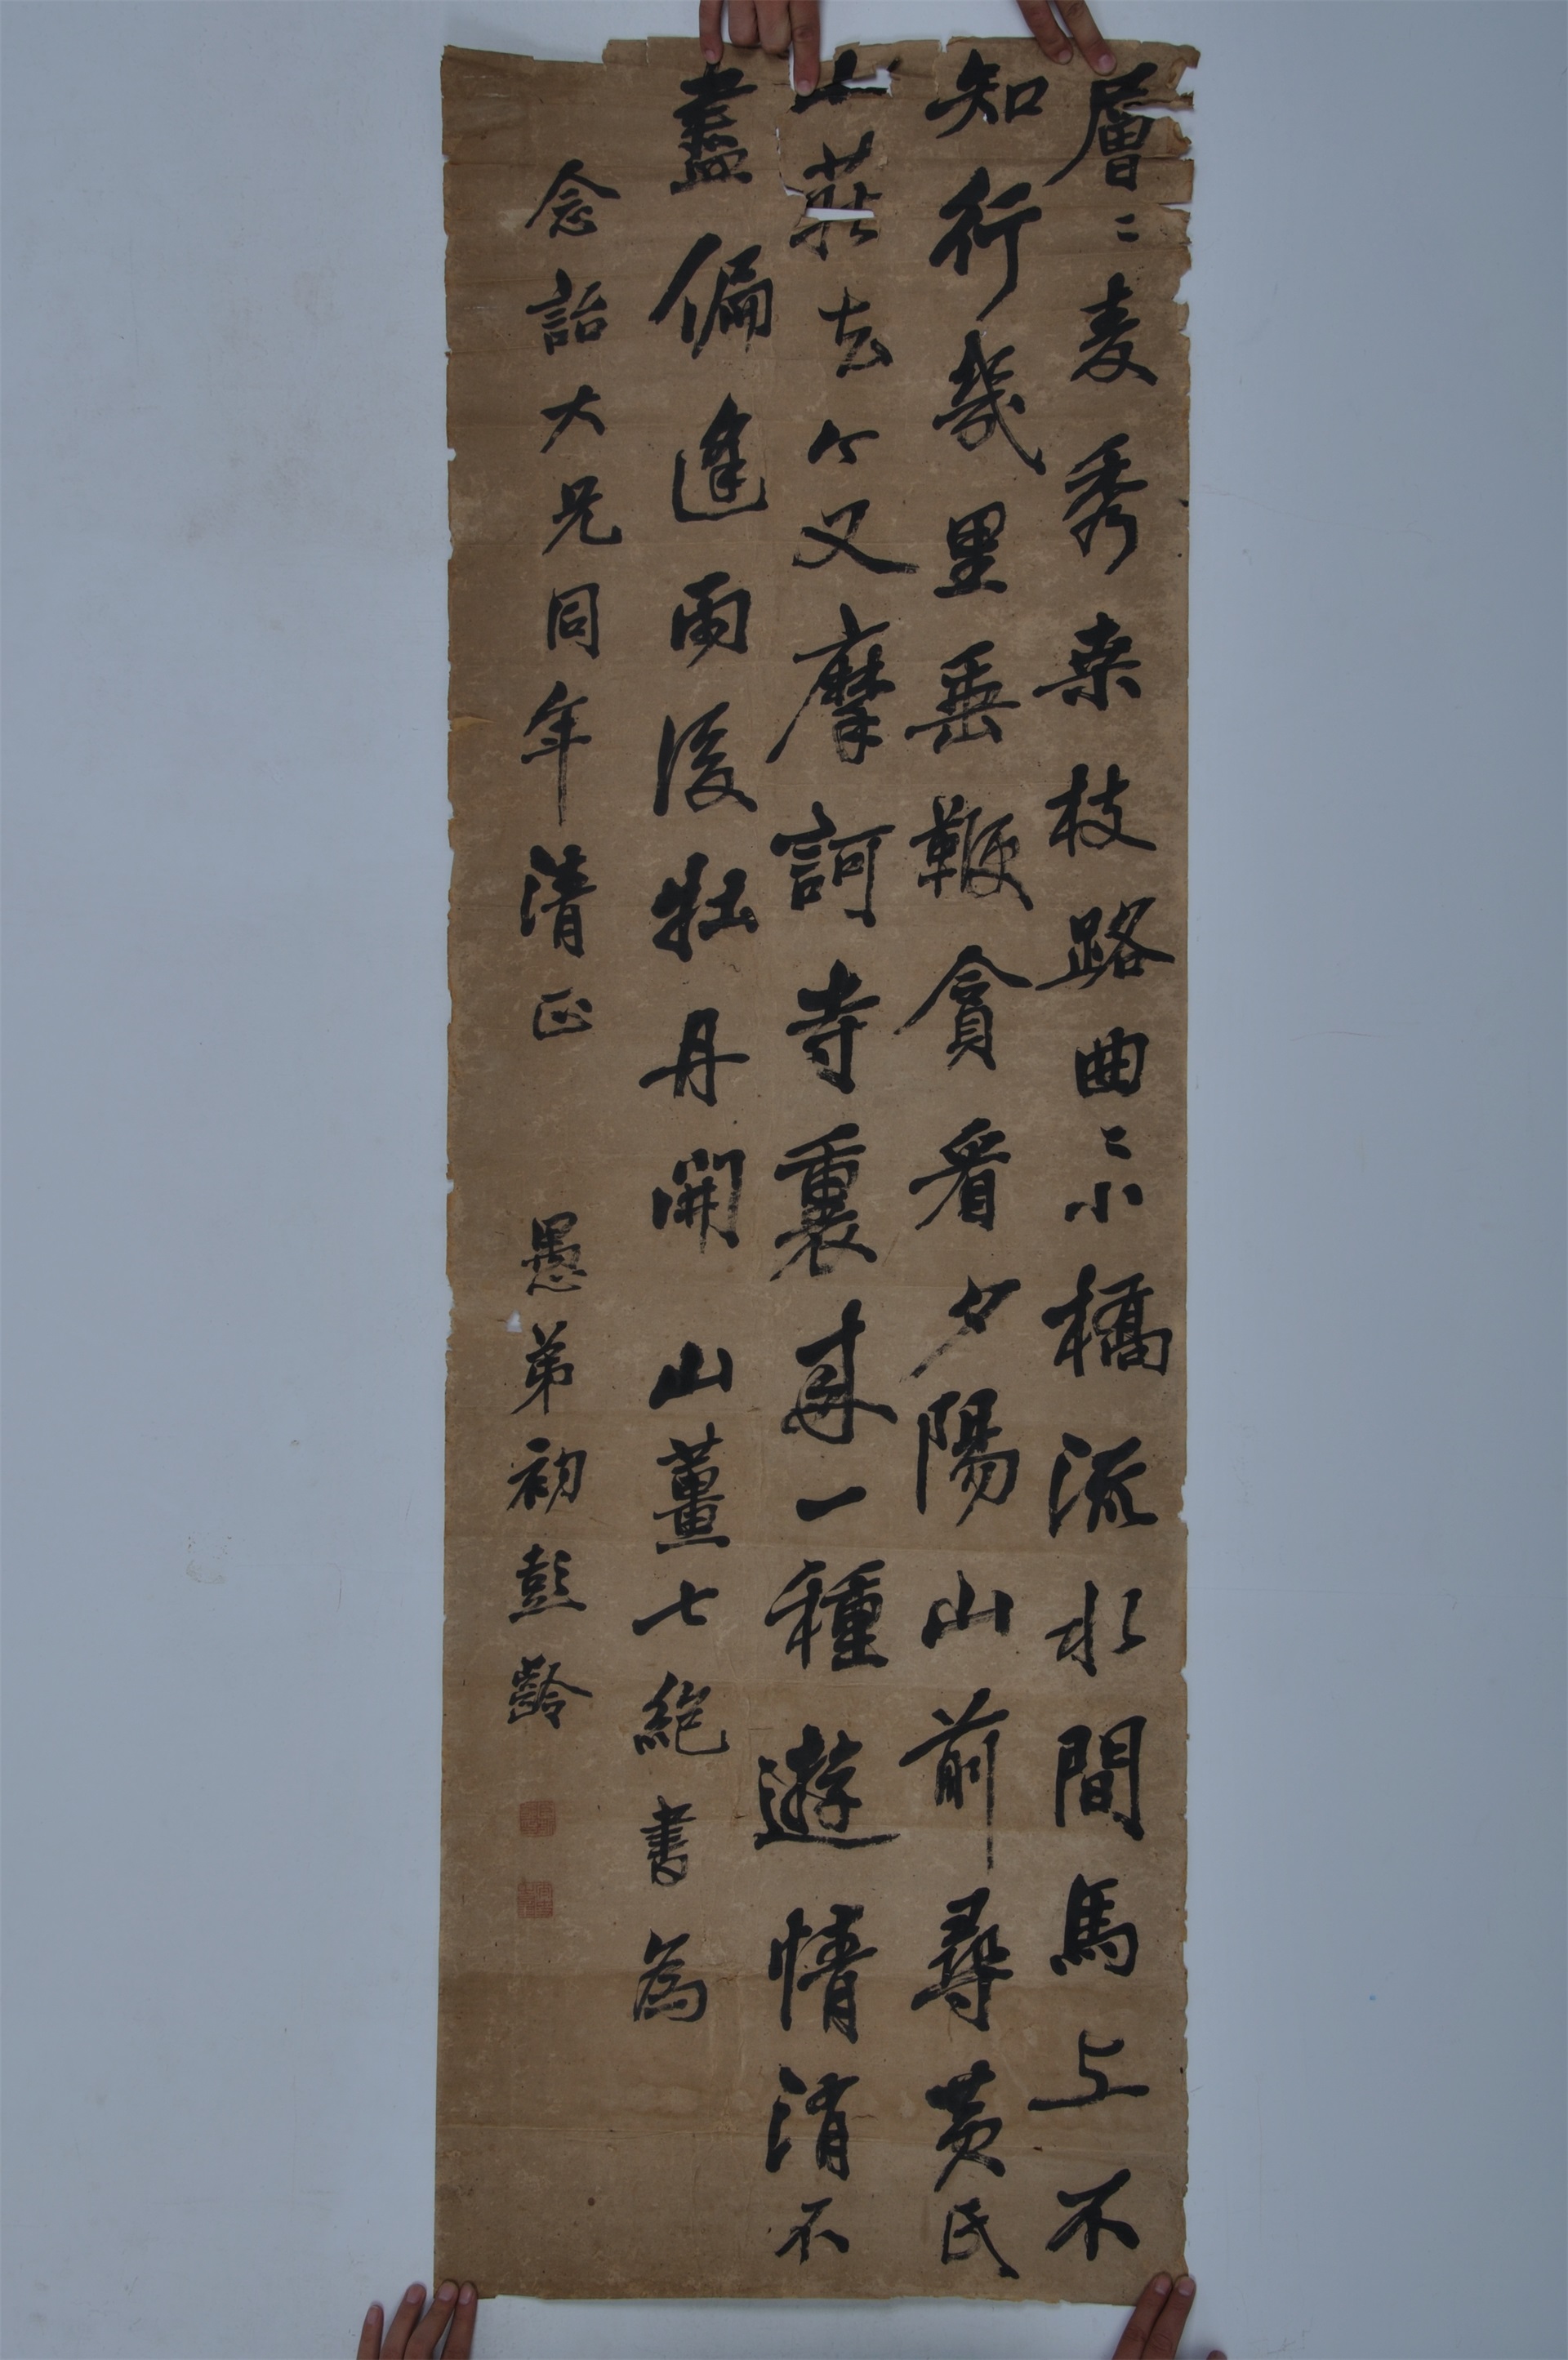 層〻麦秀桒枝路曲〻小橋流水間馬上不
知行幾里垂鞭貪看夕陽山前尋黄氏
莊去今又摩訶寺裏來一種遊情消不
盡偏逢雨後牡丹開 山薑七絶書為
念詒大兄同年清正 愚弟初彭齡